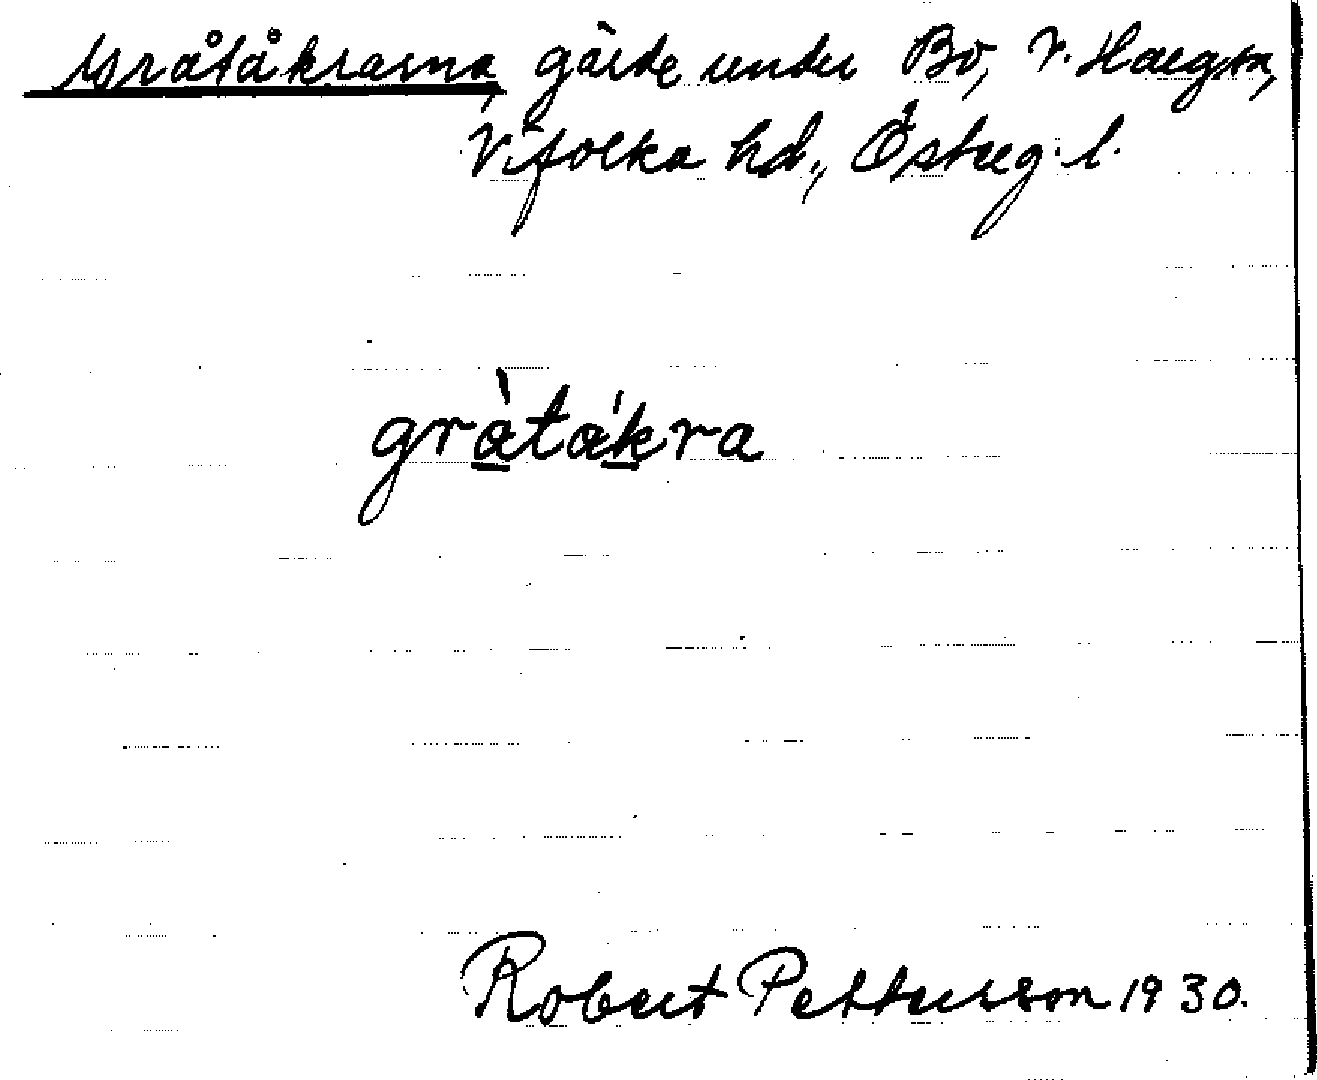 Gråtåkrarna, gärde under Bo, V. Harg sn,
Vifolka hd., Österg. l.
gràtákra
Robert Pettersson 1930.